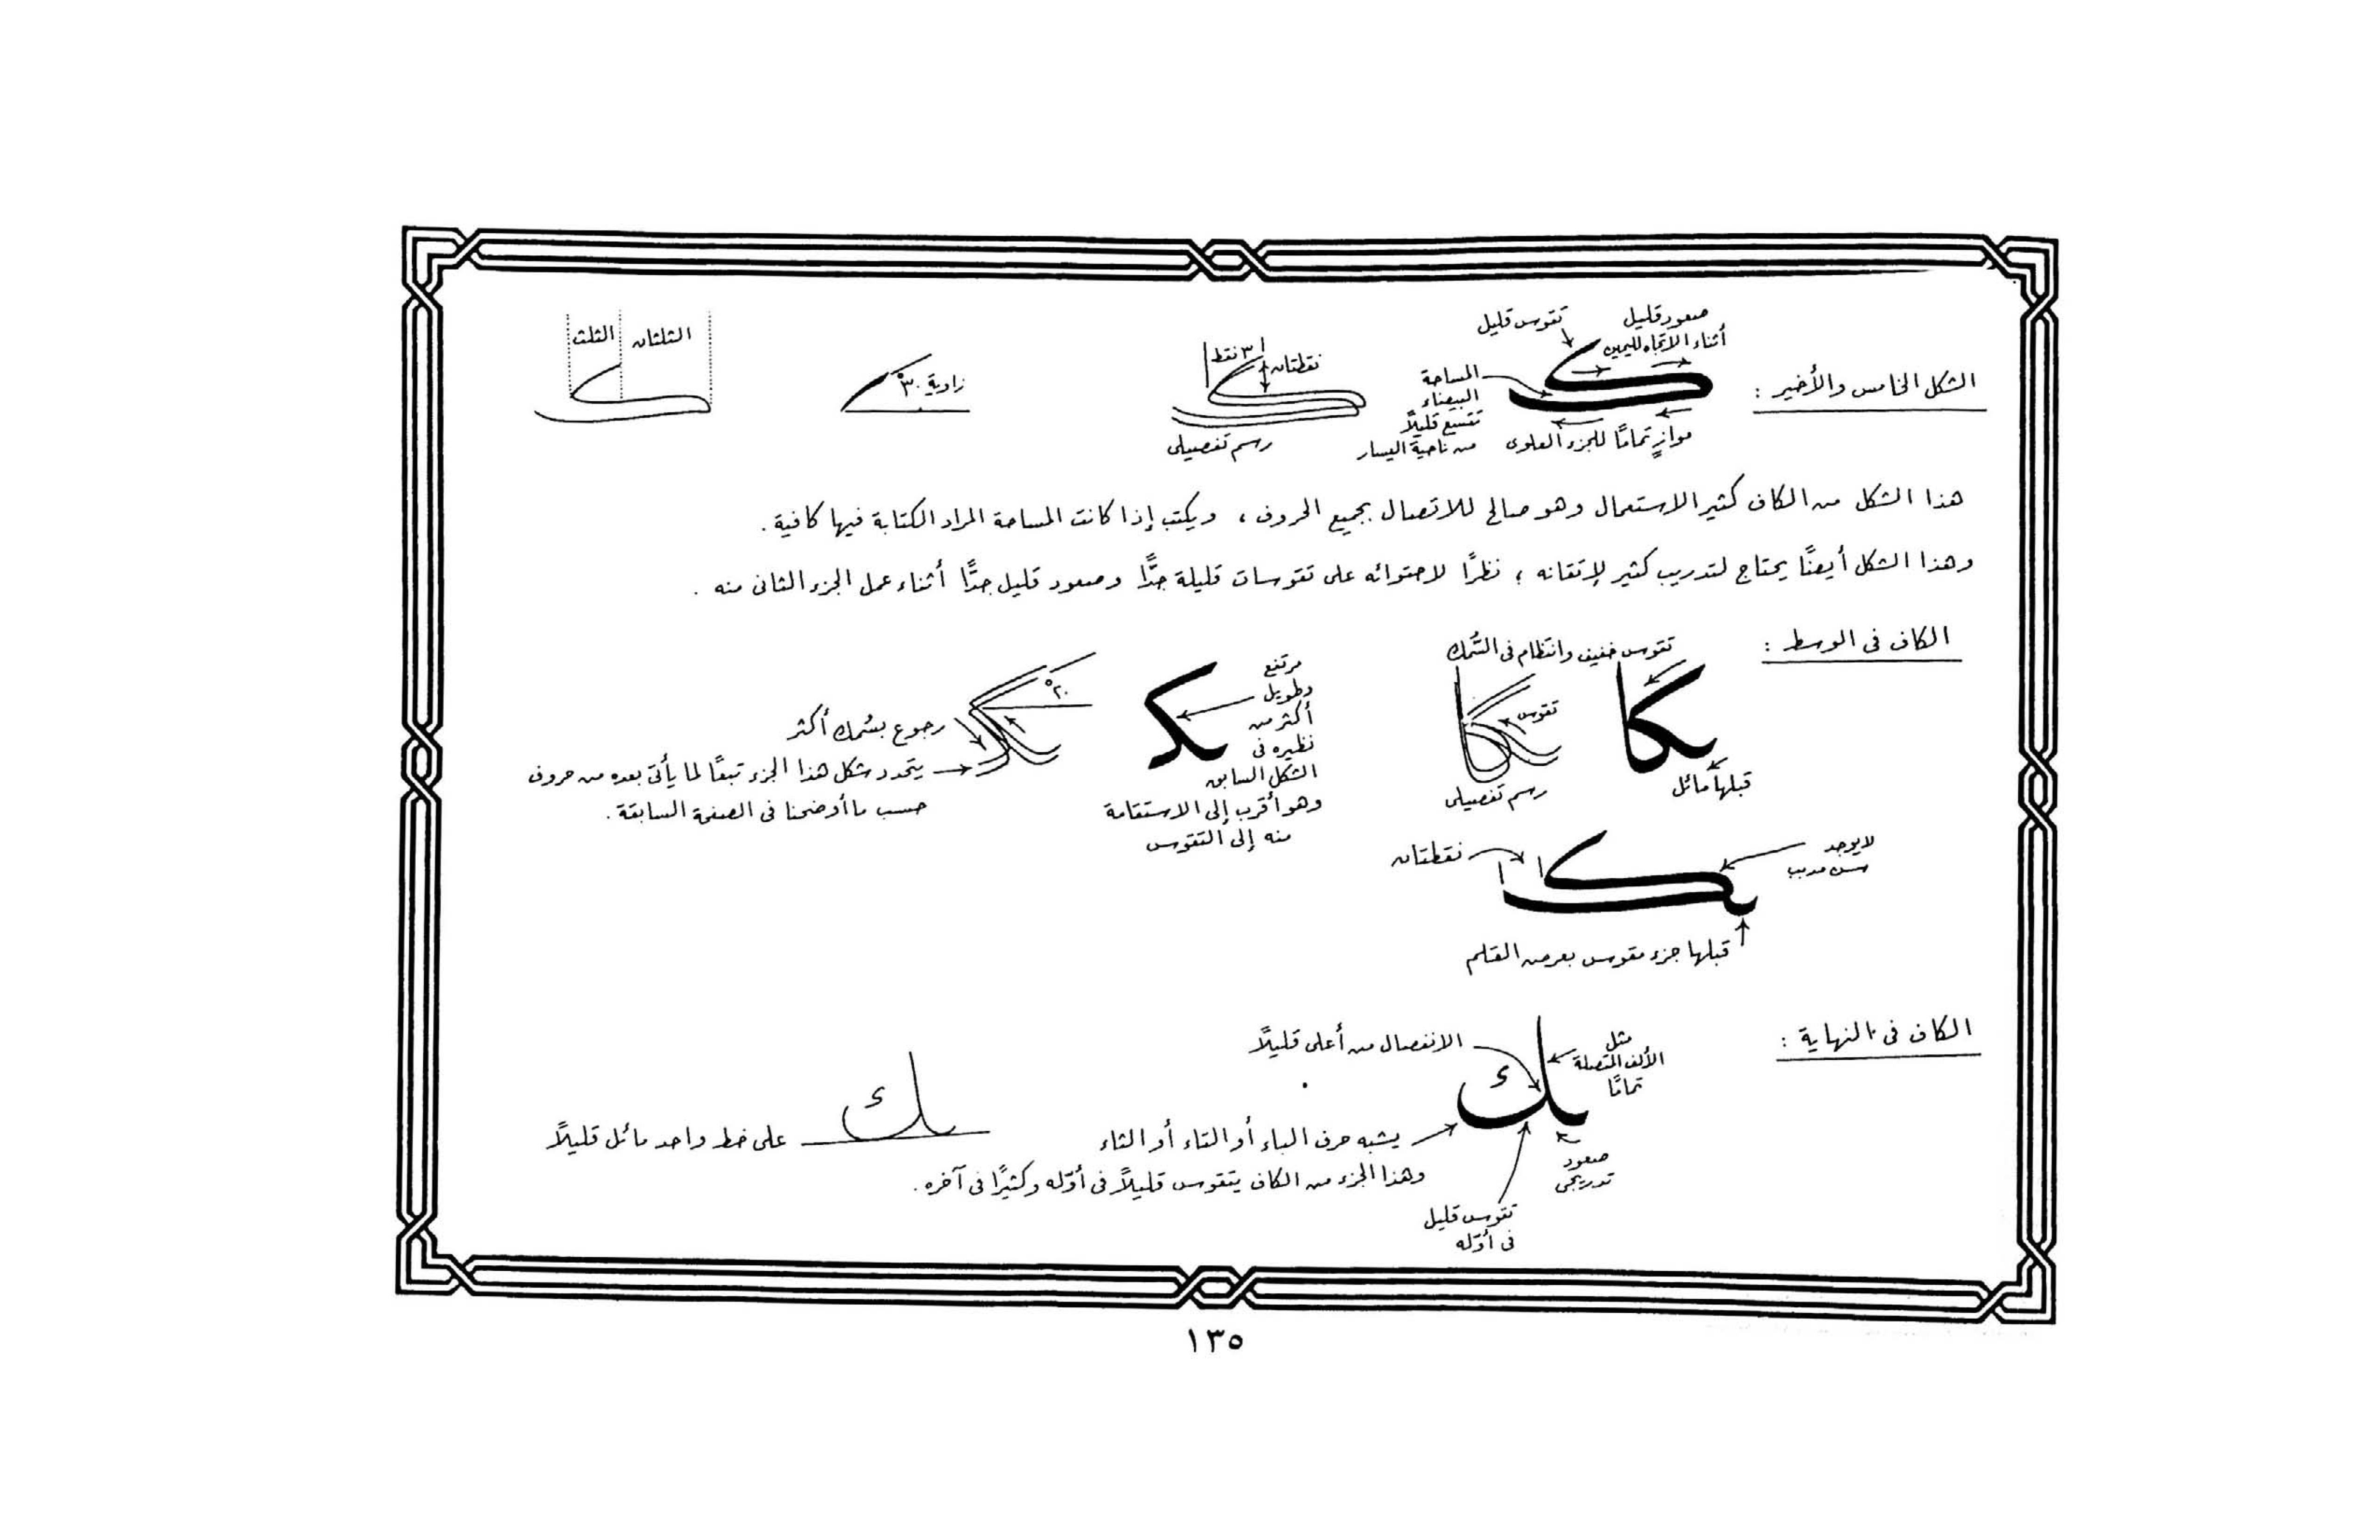 الشكل الخامس والأخير :
صعود قليل
أثناء الاتجاه لليمين
تقوس قليل
المساحة
البيضاء
تتسع قليلاً
من ناحية اليسار
موازٍ تمامًا للجزء العلوى
٣ نقط
نقطتان
رسم تفصيلى
زاوية ٣٠°
الثلثان
الثلث
هذا الشكل من الكاف كثير الاستعمال وهو صالح للاتصال بجميع الحروف ، ويكتب إذا كانت المساحة المراد الكتابة فيها كافية .
وهذا الشكل أيضًا يحتاج لتدريب كثير لإتقانه ؛ نظرًا لاحتوائه على تقوسات قليلة جدًّا وصعود قليل جدًّا أثناء عمل الجزء الثانى منه .
الكاف فى الوسط :
تقوس خفيف وانتظام فى السُّمك
كا
قبلها مائل
تقوس
رسم تفصيلى
مرتفع
وطويل
أكثر من
نظيره فى
الشكل السابق
وهو أقرب إلى الاستقامة
منه إلى التقوس
٢٠°
رجوع بسُمك أكثر
يتحدد شكل هذا الجزء تبعًا لما يأتى بعده من حروف
حسب ما أوضحنا فى الصفحة السابقة .
لا يوجد
سن مدبب
نقطتان
قبلها جزء مقوس بعرض القلم
الكاف فى النهاية :
مثل
الألف المتصلة
تمامًا
الانفصال من أعلى قليلاً
ك
صعود
تدريجى
يشبه حرف الباء أو التاء أو الثاء
وهذا الجزء من الكاف يتقوس قليلاً فى أوّله وكثيرًا فى آخره .
تقوس قليل
فى أوّله
ك
على خط واحد مائل قليلاً
١٣٥